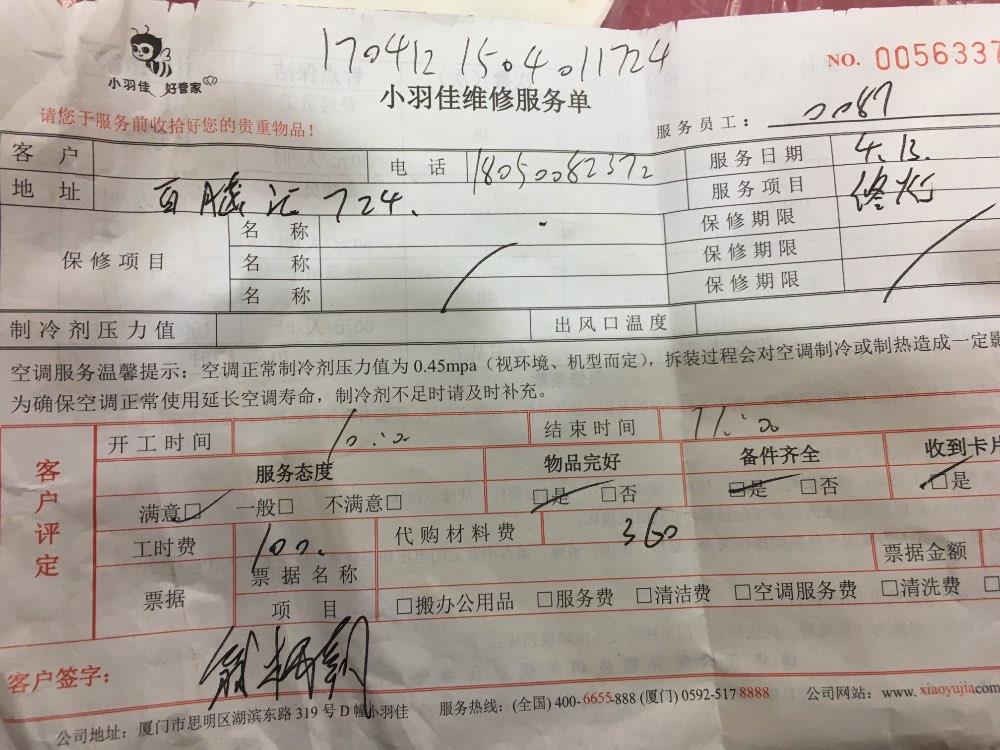 170412 1504011724
NO. 0056337
小羽佳 好管家
小羽佳维修服务单
请您于服务前收拾好您的贵重物品!
服务员工: 0087
客户 电话 18050082372 服务日期 4.13.
地址 百脑汇 724. 服务项目 修灯
保修项目 名称 保修期限
名称 保修期限
名称 保修期限
制冷剂压力值 出风口温度
空调服务温馨提示:空调正常制冷剂压力值为 0.45mpa(视环境、机型而定),拆装过程会对空调制冷或制热造成一定影
为确保空调正常使用延长空调寿命,制冷剂不足时请及时补充。
客户评定
开工时间 10:00 结束时间 11:00
服务态度 物品完好 备件齐全 收到卡片
满意□ 一般□ 不满意□ □是 □否 □是 □否 □是
工时费 100. 代购材料费 360
票据 票据名称 票据金额
项目 □搬办公用品 □服务费 □清洁费 □空调服务费 □清洗费 □
客户签字:
公司地址:厦门市思明区湖滨东路 319 号 D 幢小羽佳 服务热线:(全国) 400-6655-888 (厦门) 0592-517 8888 公司网站:www.xiaoyujia.com